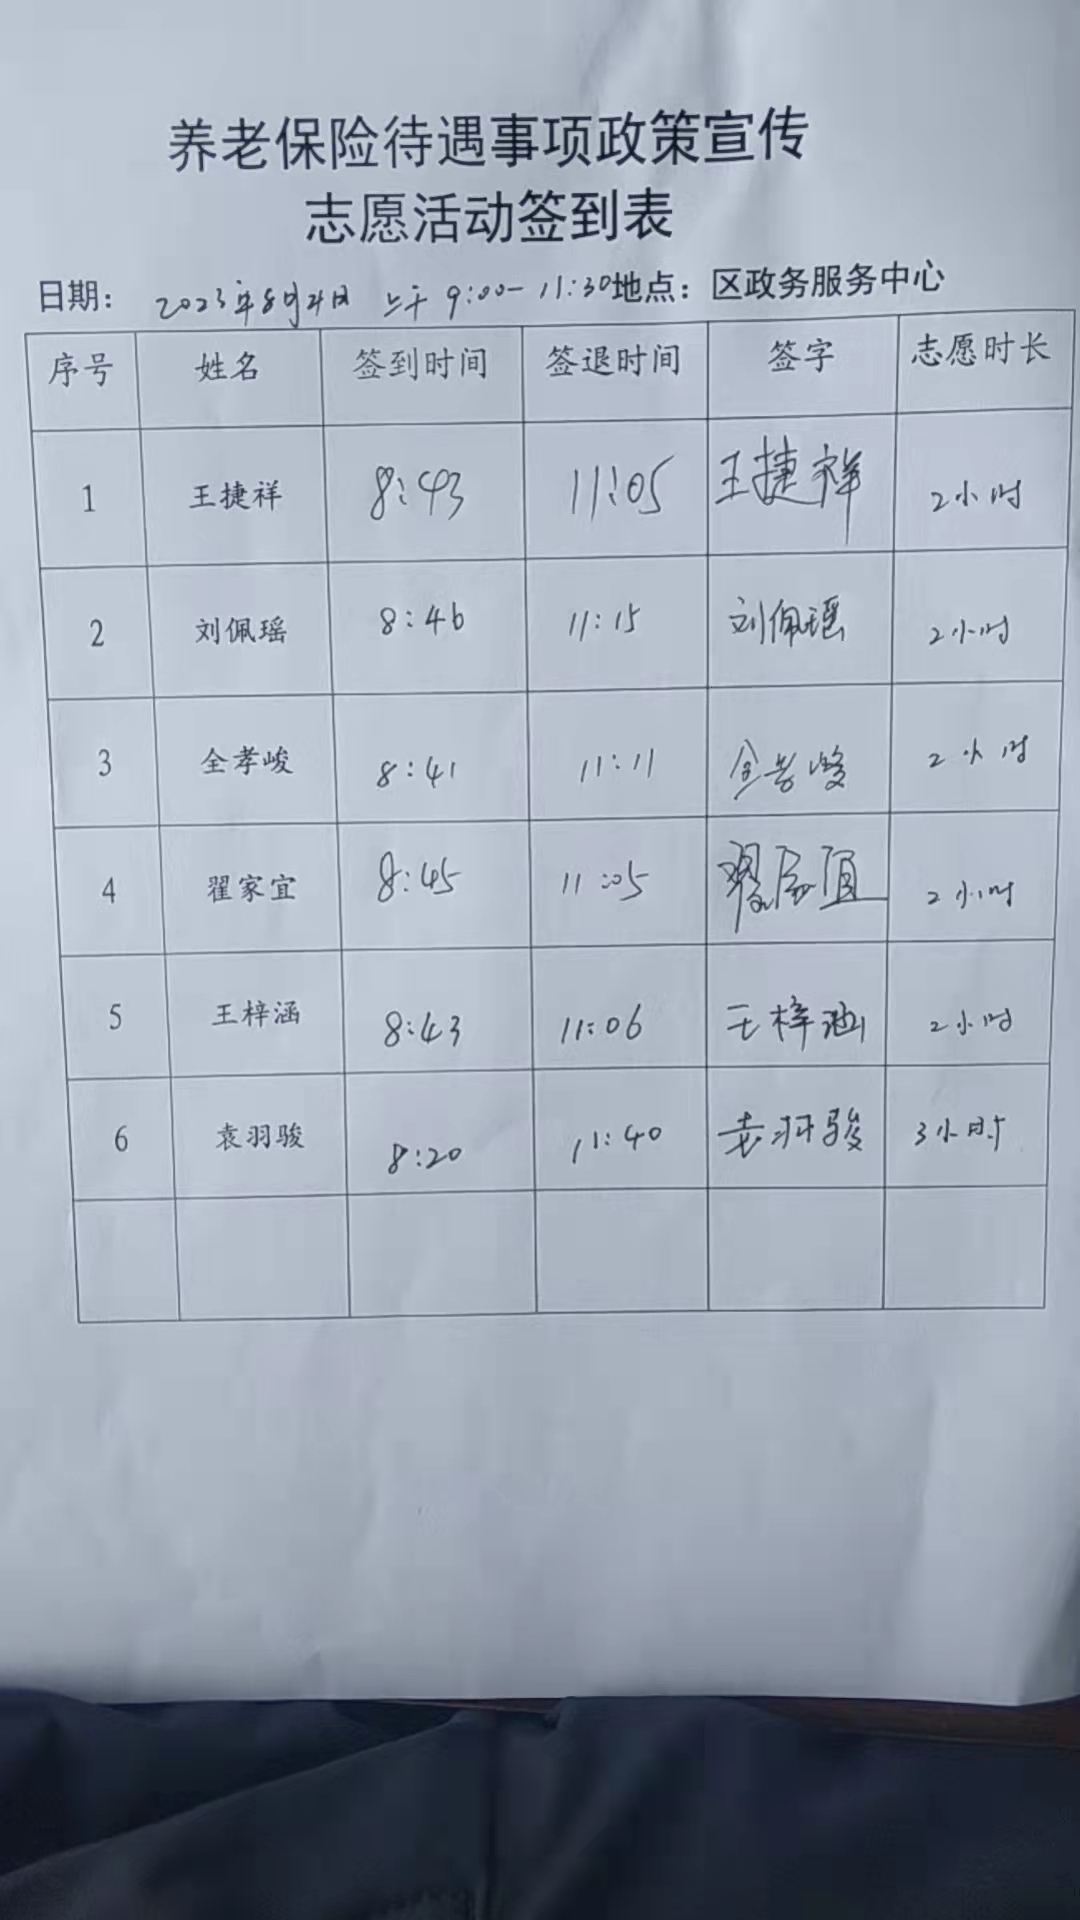 养老保险待遇事项政策宣传
志愿活动签到表
日期： 2023年8月4日 上午 9:00-11:30地点：区政务服务中心
序号 姓名 签到时间 签退时间 签字 志愿时长
1 王捷祥 8:43 11:05 王捷祥 2小时
2 刘佩瑶 8:46 11:15 刘佩瑶 2小时
3 全孝峻 8:41 11:11 全孝峻 2小时
4 翟家宜 8:45 11:05 翟家宜 2小时
5 王梓涵 8:43 11:06 王梓涵 2小时
6 袁羽骏 8:20 11:40 袁羽骏 3小时